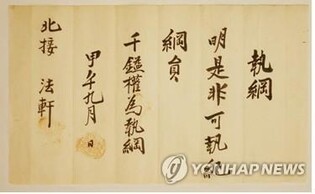 執綱
明是非可執綱
綱員
千鎰權為執綱
甲午九月 日
北接 法軒
YONHAP NEWS